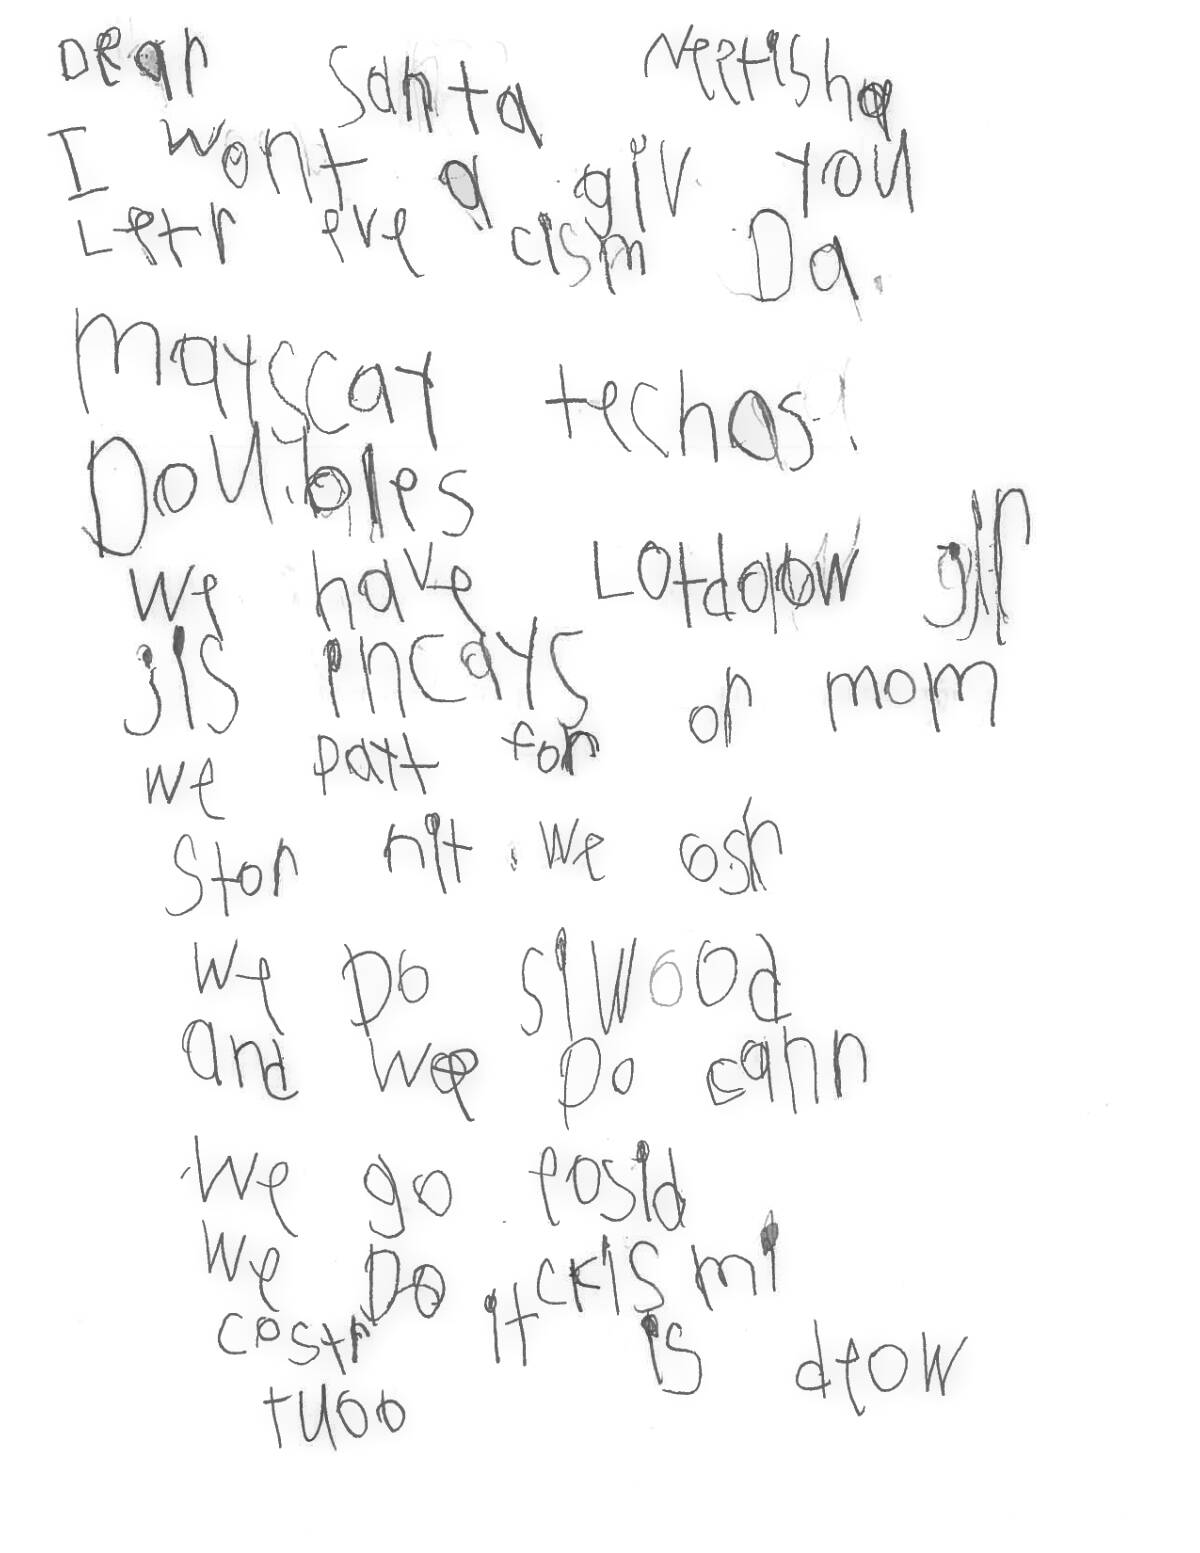 Dear Santa Neetisha
I wont a giv you
Letr eve cism Da.
mayscay techos
Doubles
we have Lotdoow gir
jis incays or mom
we payt for
Stor nit. we osh
we Do siwood
and we Do cahn
we go eosid
we Do ckismi
costr it is deow
tuoo